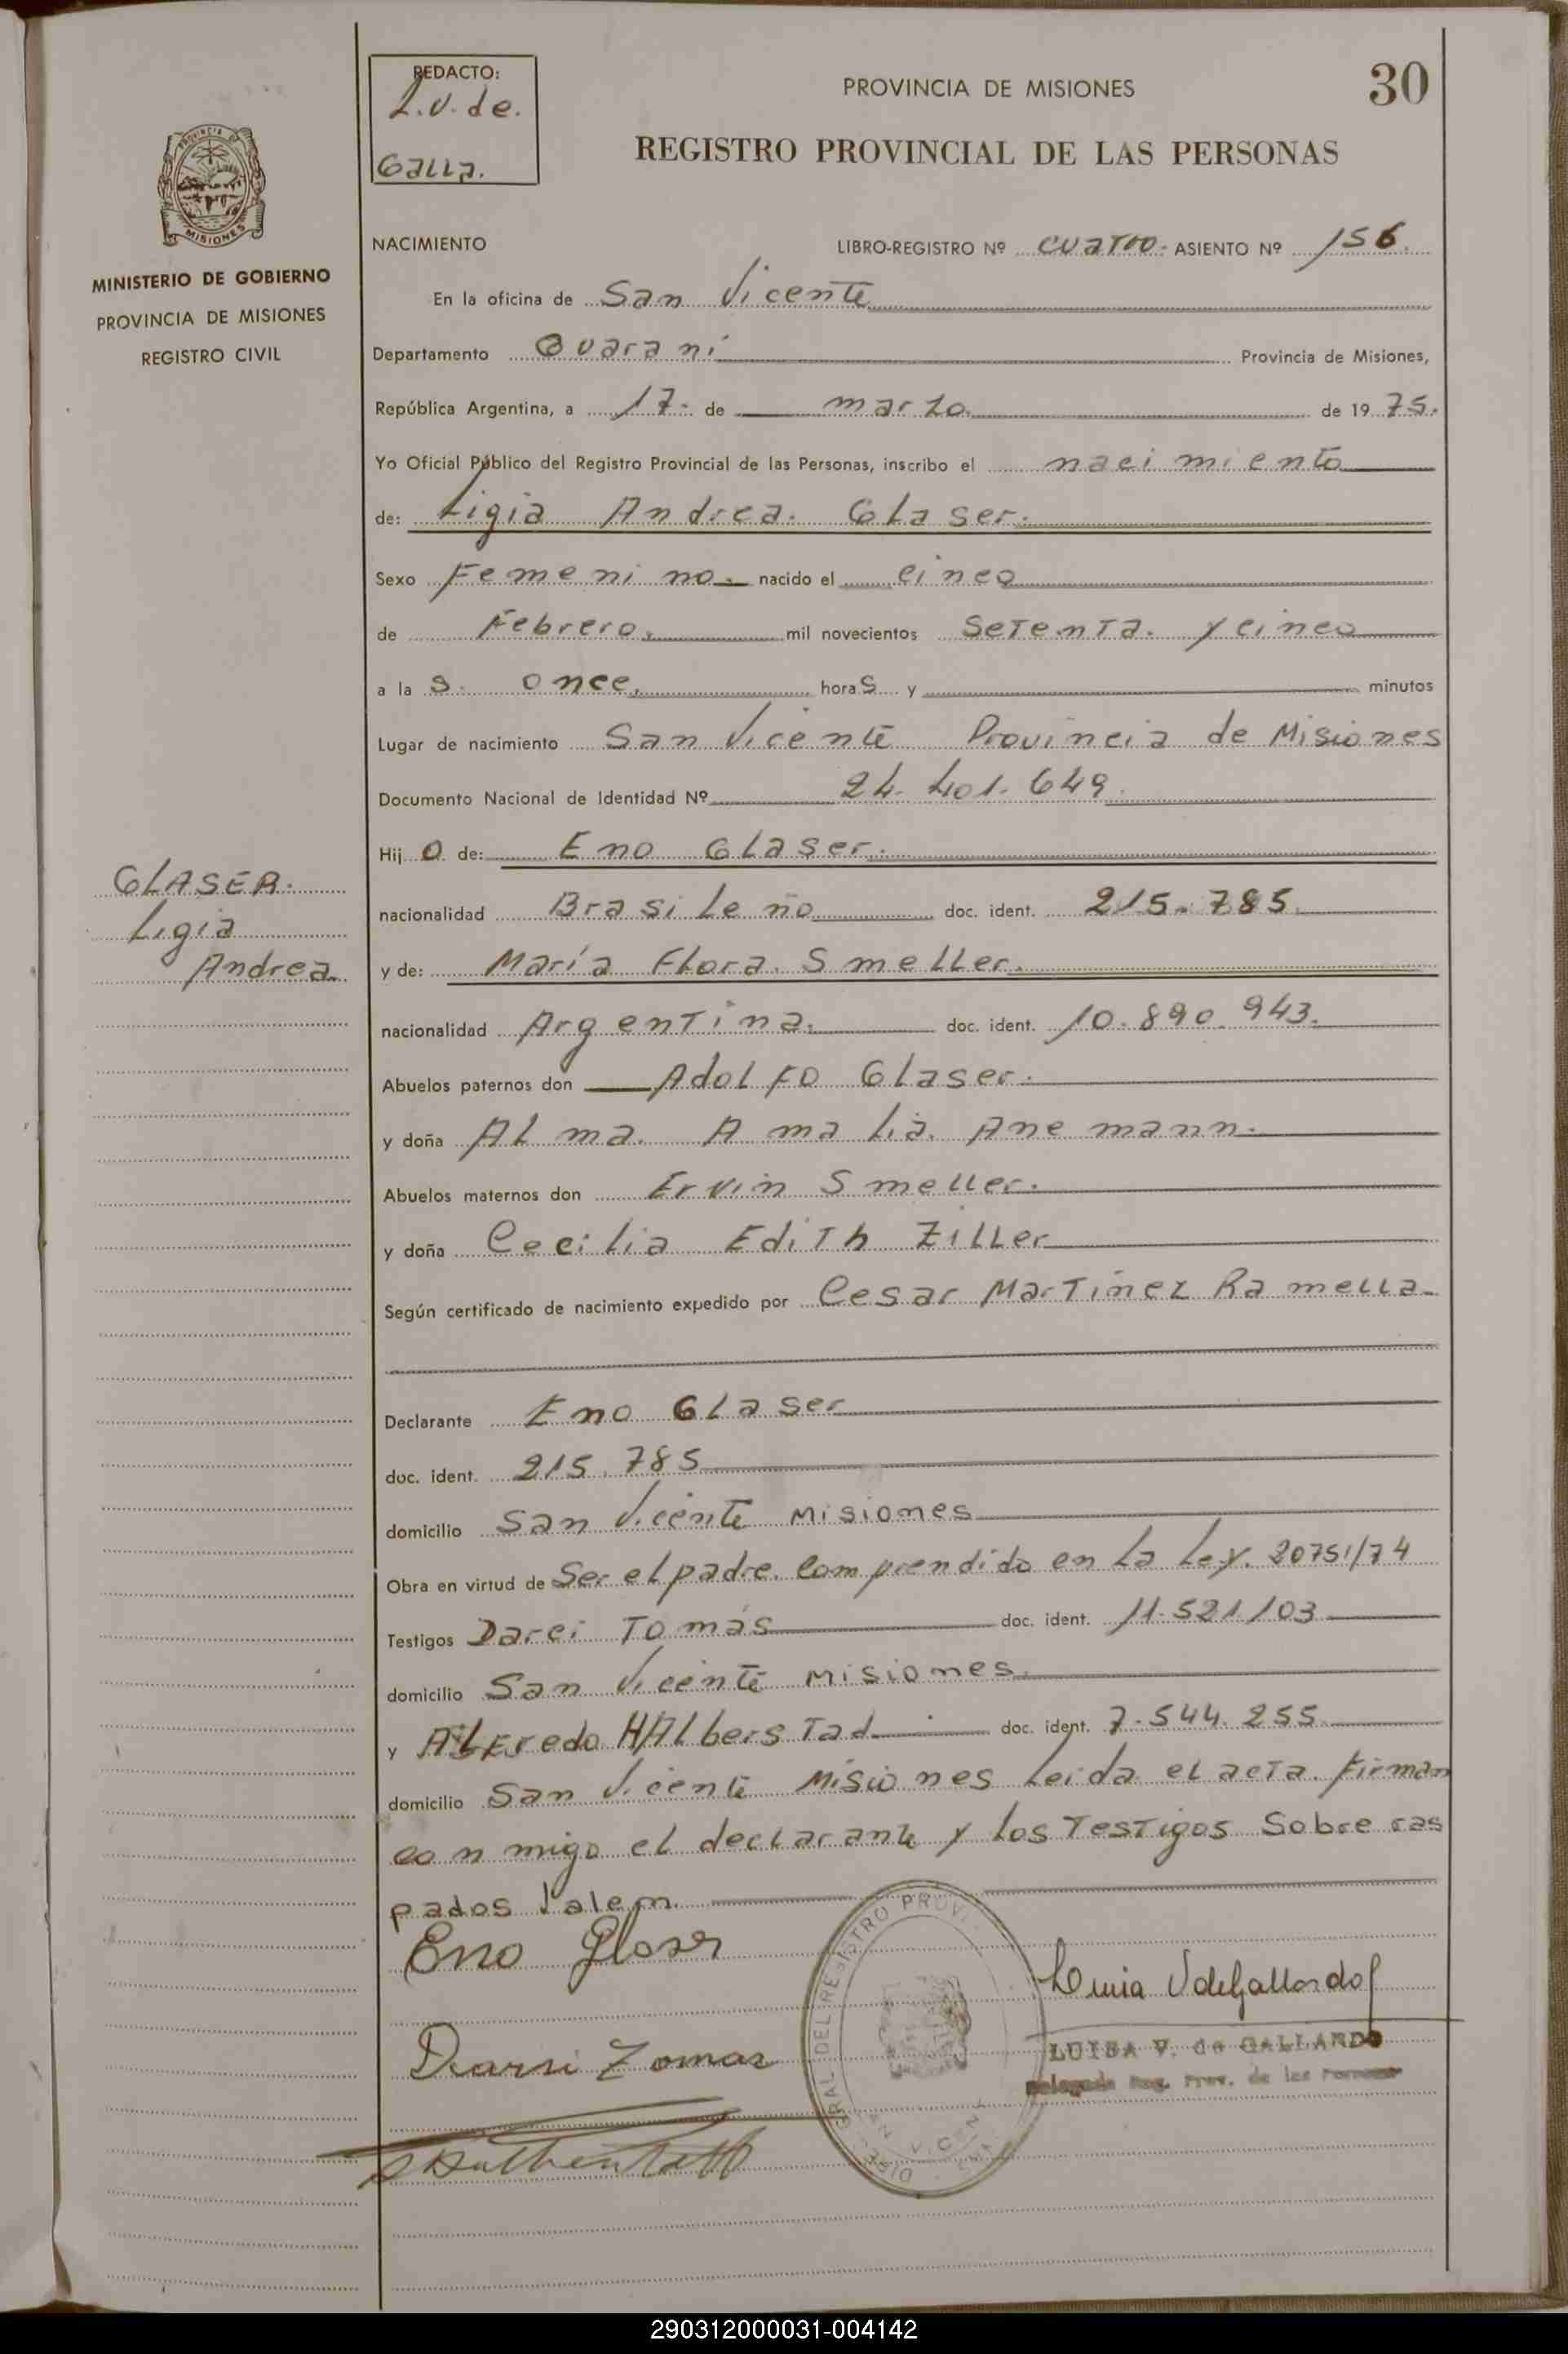 REDACTO:
L.V. de.
Galla.
PROVINCIA DE MISIONES
30
REGISTRO PROVINCIAL DE LAS PERSONAS
PROVINCIA DE
MISIONES
MINISTERIO DE GOBIERNO
PROVINCIA DE MISIONES
REGISTRO CIVIL
NACIMIENTO LIBRO-REGISTRO Nº cuarto. ASIENTO Nº 156.
En la oficina de San Vicente
Departamento Guaraní Provincia de Misiones,
República Argentina, a 17. de marzo. de 19 75.
Yo Oficial Público del Registro Provincial de las Personas, inscribo el nacimiento
de: Ligia Andrea. Glaser.
Sexo Femenino. nacido el cinco
de Febrero. mil novecientos Setenta. y cinco
a la s. once. hora s y minutos
Lugar de nacimiento San Vicente Provincia de Misiones
Documento Nacional de Identidad Nº 24. 401. 649.
Hij o de: Eno Glaser.
GLASER.
Ligia
Andrea.
nacionalidad Brasileño doc. ident. 215. 785.
y de: María Flora. Smeller.
nacionalidad Argentina. doc. ident. 10. 890. 943.
Abuelos paternos don Adolfo Glaser.
y doña Alma. Amalia. Anemann.
Abuelos maternos don Ervin Smeller.
y doña Cecilia Edith Ziller
Según certificado de nacimiento expedido por Cesar Martínez Ramella.
Declarante Eno Glaser
doc. ident. 215. 785
domicilio San Vicente Misiones
Obra en virtud de Ser el padre. Comprendido en la Ley. 20751/74
Testigos Darci Tomás doc. ident. 11.521.103
domicilio San Vicente Misiones.
y Alfredo HAlberstad doc. ident. 7. 544. 255.
domicilio San Vicente Misiones Leída el acta. Firman
conmigo el declarante y los Testigos Sobre ras
pados Valem.
Eno Glaser
Luisa V de Gallardo
Darci Tomas
LUISA V. de GALLARDO
Delegada Reg. Prov. de las Personas
RAL DEL REGISTRO PROVI
290312000031-004142